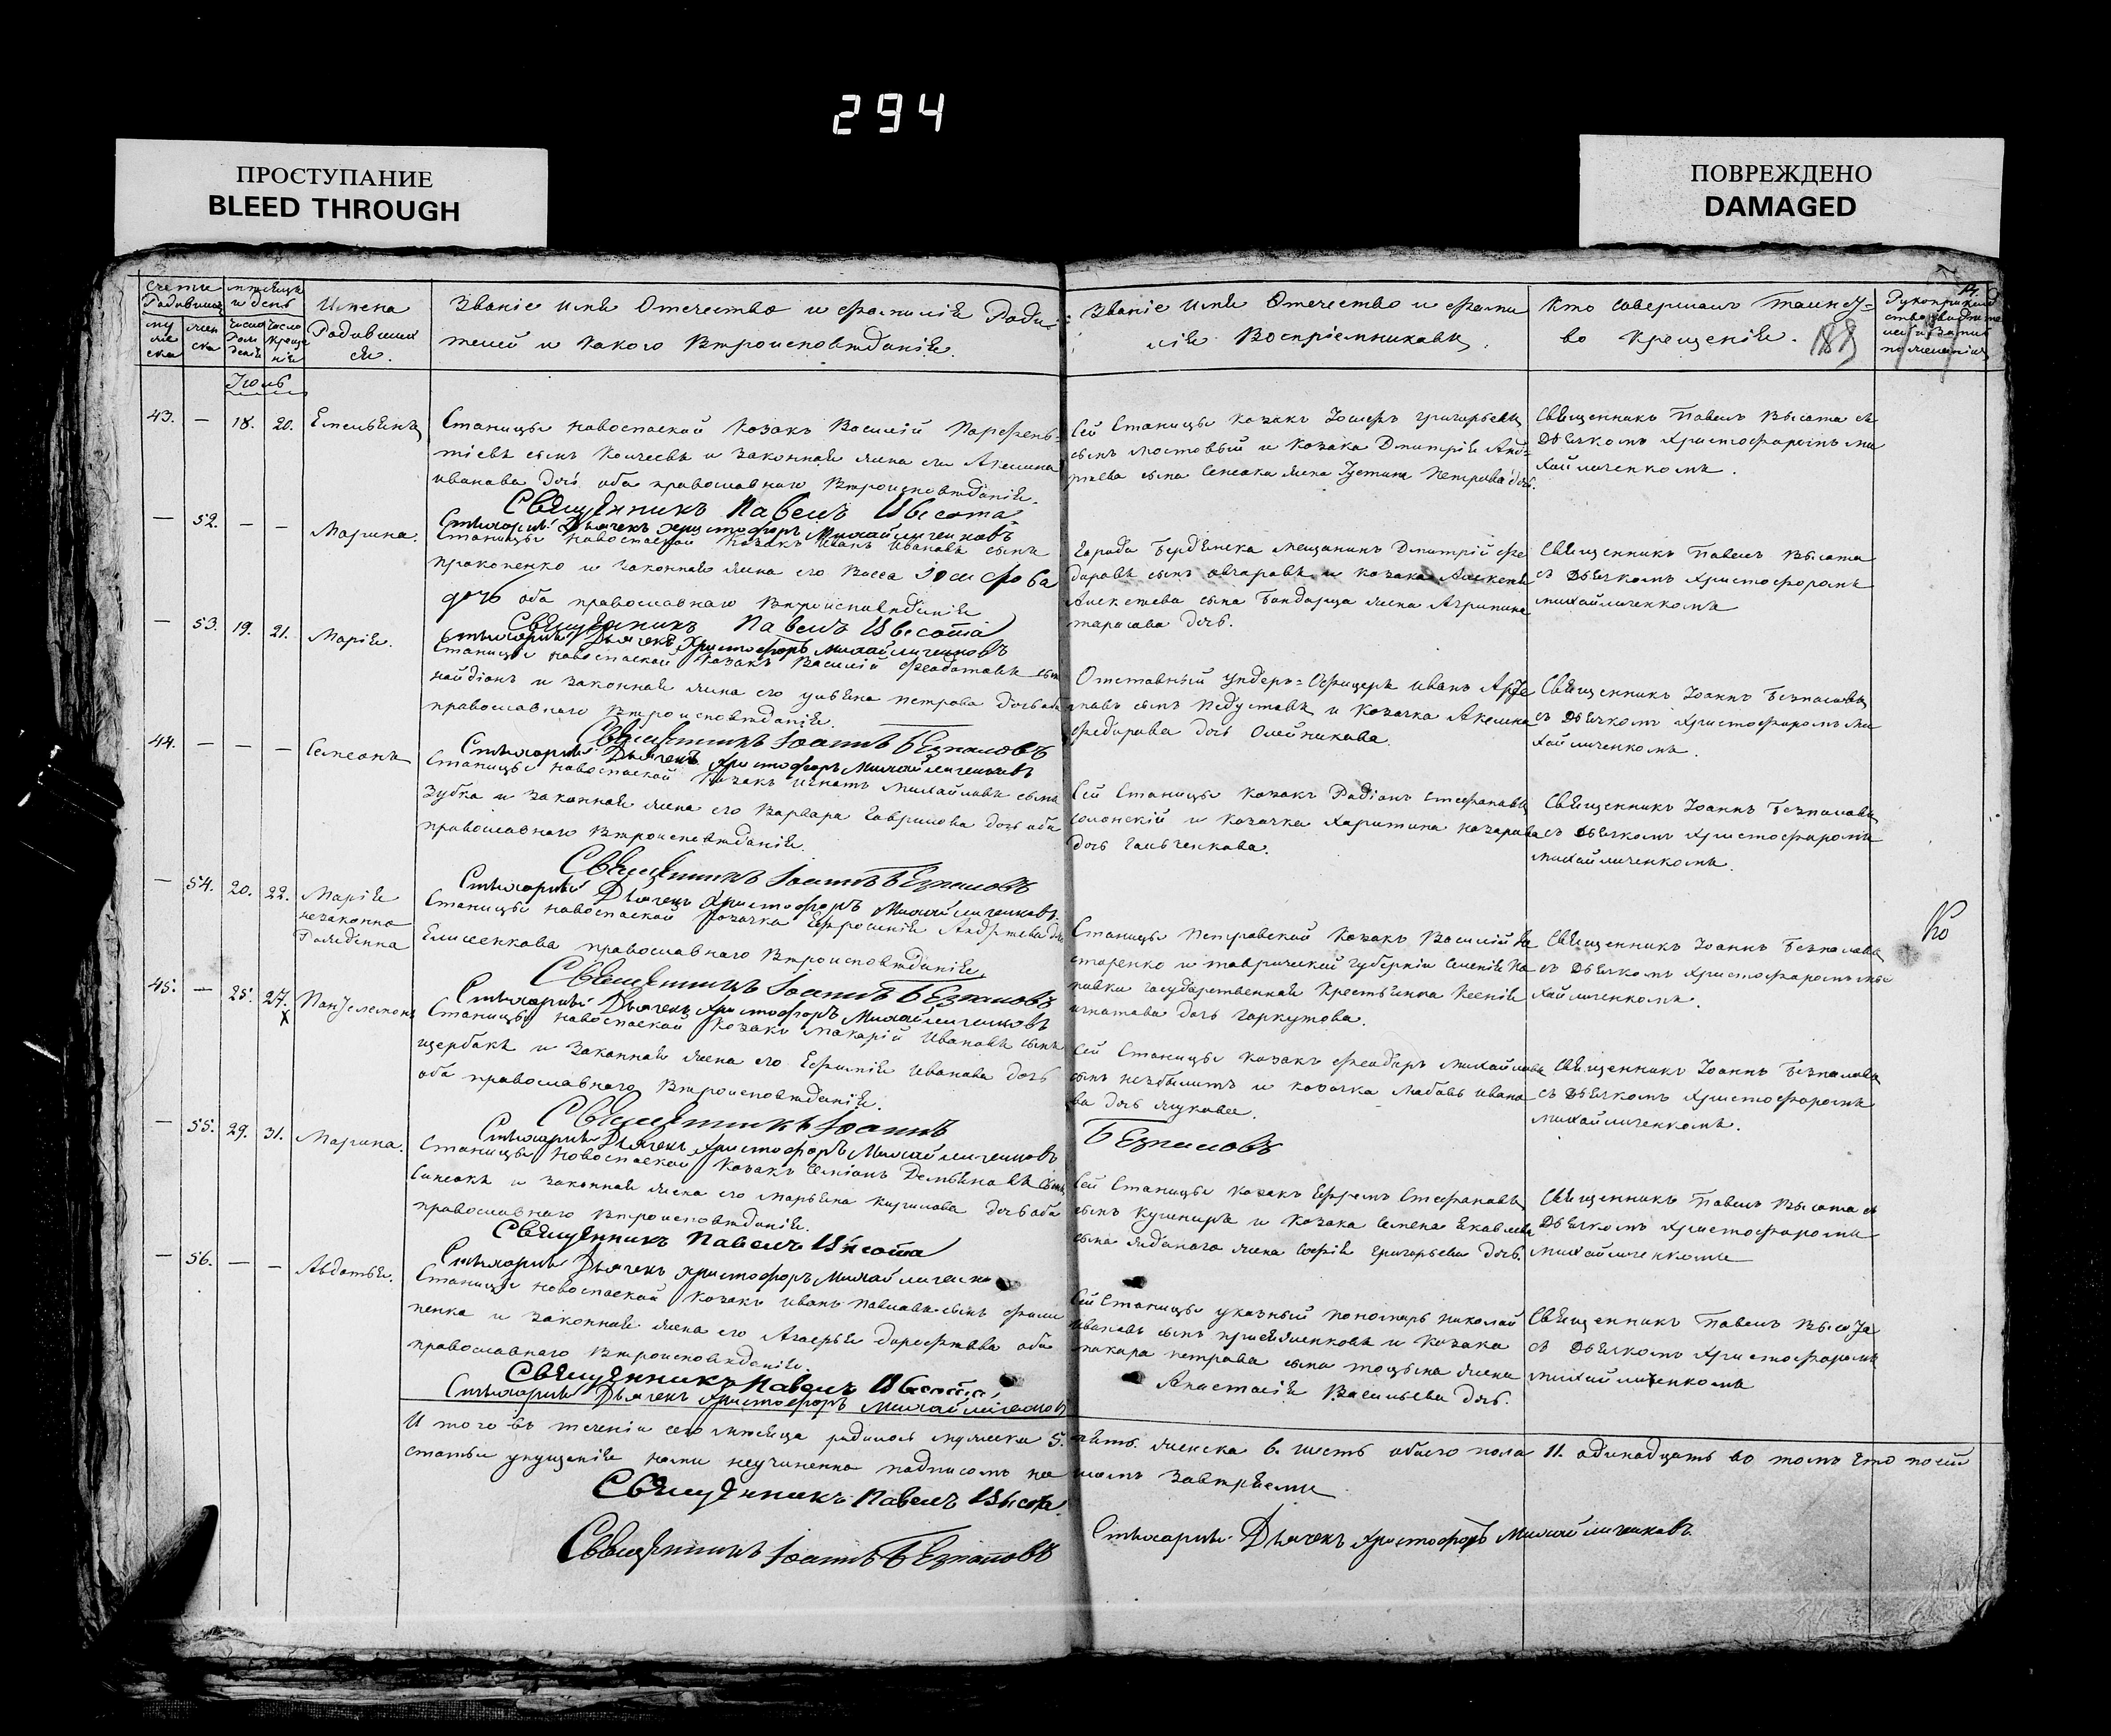 294
ПРОСТУПАНИЕ
BLEED THROUGH
ПОВРЕЖДЕНО
DAMAGED
Счетъ Родившихся
мужеска
женска
мѣсяцъ и день
число рожденія
число крещенія
Имена Родившихся.
Званіе имя Отечество и фамилія Роди-
телей и какого Вѣроисповѣданія.
Званіе имя Отечество и фами
лія Воспріемниковъ.
Кто совершалъ таинст-
во крещенія.
189
Іюль
43. — 18. 20. Емельянъ
Станицы Новоспаской Козакъ Василій Парфень-
тіевъ сынъ и законная жена его Акилина
Иванова дочь оба православнаго Вѣроисповѣданія.
Священникъ Павелъ Высота
Стихарный Дьячекъ Христофоръ Михайличенковъ
Сей Станицы козакъ Іосифъ Григорьевъ
сынъ Мостовый и козака Дмитрія Анд-
рѣева сына жена Іустина Петрова дочь.
Священникъ Павелъ Высота съ
Дьячкомъ Христофоромъ Ми
хайличенкомъ.
— 52. — — Марина.
Станицы Новоспаской Козакъ Иванъ Ивановъ сынъ
Прокопенко и законная жена его Васса Іосифова
дочь оба православнаго Вѣроисповѣданія
Священникъ Павелъ Высота
Стихарный Дьячекъ Христофоръ Михайличенковъ
Города Бердянска мещанинъ Дмитрій Фе
доровъ сынъ Овчаровъ и козака Алексѣя
Алексѣева сына Бондарца жена Агрипина
Тарасова дочь.
Священникъ Павелъ Высота
съ Дьячкомъ Христофоромъ
Михайличенкомъ
— 53. 19. 21. Марія.
Станицы Новоспаской Козакъ Василій Феодотовъ сынъ
Найдіонъ и законная жена его Ульяна Петрова дочь оба
православнаго Вѣроисповѣданія.
Священникъ Іоаннъ Безпаловъ
Стихарный Дьячекъ Христофоръ Михайличенковъ
Отставный ундеръ-Офицеръ Иванъ
сынъ и Козачка Акилина
Федорова дочь Олейникова.
Священникъ Іоаннъ Безпаловъ
съ Дьячкомъ Христофоромъ Ми
хайличенкомъ.
44. — — — Симеонъ
Станицы Новоспаской Козакъ Игнатъ Михайловъ сынъ
Зубка и законная жена его Варвара Гаврилова дочь оба
православнаго Вѣроисповѣданія.
Священникъ Іоаннъ Безпаловъ
Стихарный Дьячекъ Христофоръ Михайличенковъ.
Сей Станицы Козакъ Родіонъ Стефановъ
Солонскій и козачка Харитина Назарова
дочь Гальченкова.
Священникъ Іоаннъ Безпаловъ
съ Дьячкомъ Христофоромъ
Михайличенкомъ.
— 54. 20. 22. Марія
незаконно
Рожденна
Станицы Новоспаской Козачка Ефросинія Андрѣева дочь
Елисеенкова православнаго Вѣроисповѣданія.
Священникъ Іоаннъ Безпаловъ
Стихарный Дьячекъ Христофоръ Михайличенковъ
Станицы Петровской Козакъ Василій
и Таврической губерніи
Государственная Крестьянка Ксенія
Игнатова дочь Гаркутова.
Священникъ Іоаннъ Безпаловъ
съ Дьячкомъ Христофоромъ Ми
хайличенкомъ.
45. — 25. 27. Пантелемонъ
Х
Станицы Новоспаской Козакъ Макарій Ивановъ сынъ
Щербакъ и законная жена его Ефимія Иванова дочь
оба православнаго Вѣроисповѣданія.
Священникъ Іоаннъ
Безпаловъ
Стихарный Дьячекъ Христофоръ Михайличенковъ
Сей Станицы козакъ Феодоръ Михайловъ
сынъ и козачка Любовь Ивано
ва дочь Жукова.
Священникъ Іоаннъ Безпаловъ
съ Дьячкомъ Христофоромъ
Михайличенкомъ.
— 55. 29. 31. Марина.
Станицы Новоспаской Козакъ Симіонъ Демьяновъ сынъ
Синеокъ и законная жена его Марьяна Кирилова дочь оба
православнаго Вѣроисповѣданія.
Священникъ Павелъ Высота
Стихарный Дьячекъ Христофоръ Михайличенко
Сей Станицы козакъ Ефремъ Стефановъ
сынъ Кушниръ и козака Семена Яковлева
сына жена Софія Григорьева дочь.
Священникъ Павелъ Высота съ
Дьячкомъ Христофоромъ
Михайличенкомъ
— 56. — — Авдотья.
Станицы Новоспаской Козакъ Иванъ Павловъ сынъ Фили
пенка и законная жена его Агафья Дорофѣева оба
православнаго Вѣроисповѣданія.
Священникъ Павелъ Высота
Стихарный Дьячекъ Христофоръ Михайличенковъ
Сей Станицы указный пономарь Николай
Ивановъ сынъ и Козака
Макара Петрова сына жена
Анастасія Васильева дочь.
Священникъ Павелъ Высота
съ Дьячкомъ Христофоромъ
Михайличенкомъ
Итого въ теченіи сего мѣсяца родилось мужеска 5. пять. женска 6. шесть обоего пола 11. одинадцать во томъ что по сей
статьи упущенія нами неучиненно подписомъ на шимъ завѣряемъ
Священникъ Павелъ Высота.
Священникъ Іоаннъ Безпаловъ
Стихарный Дьячекъ Христофоръ Михайличенковъ.